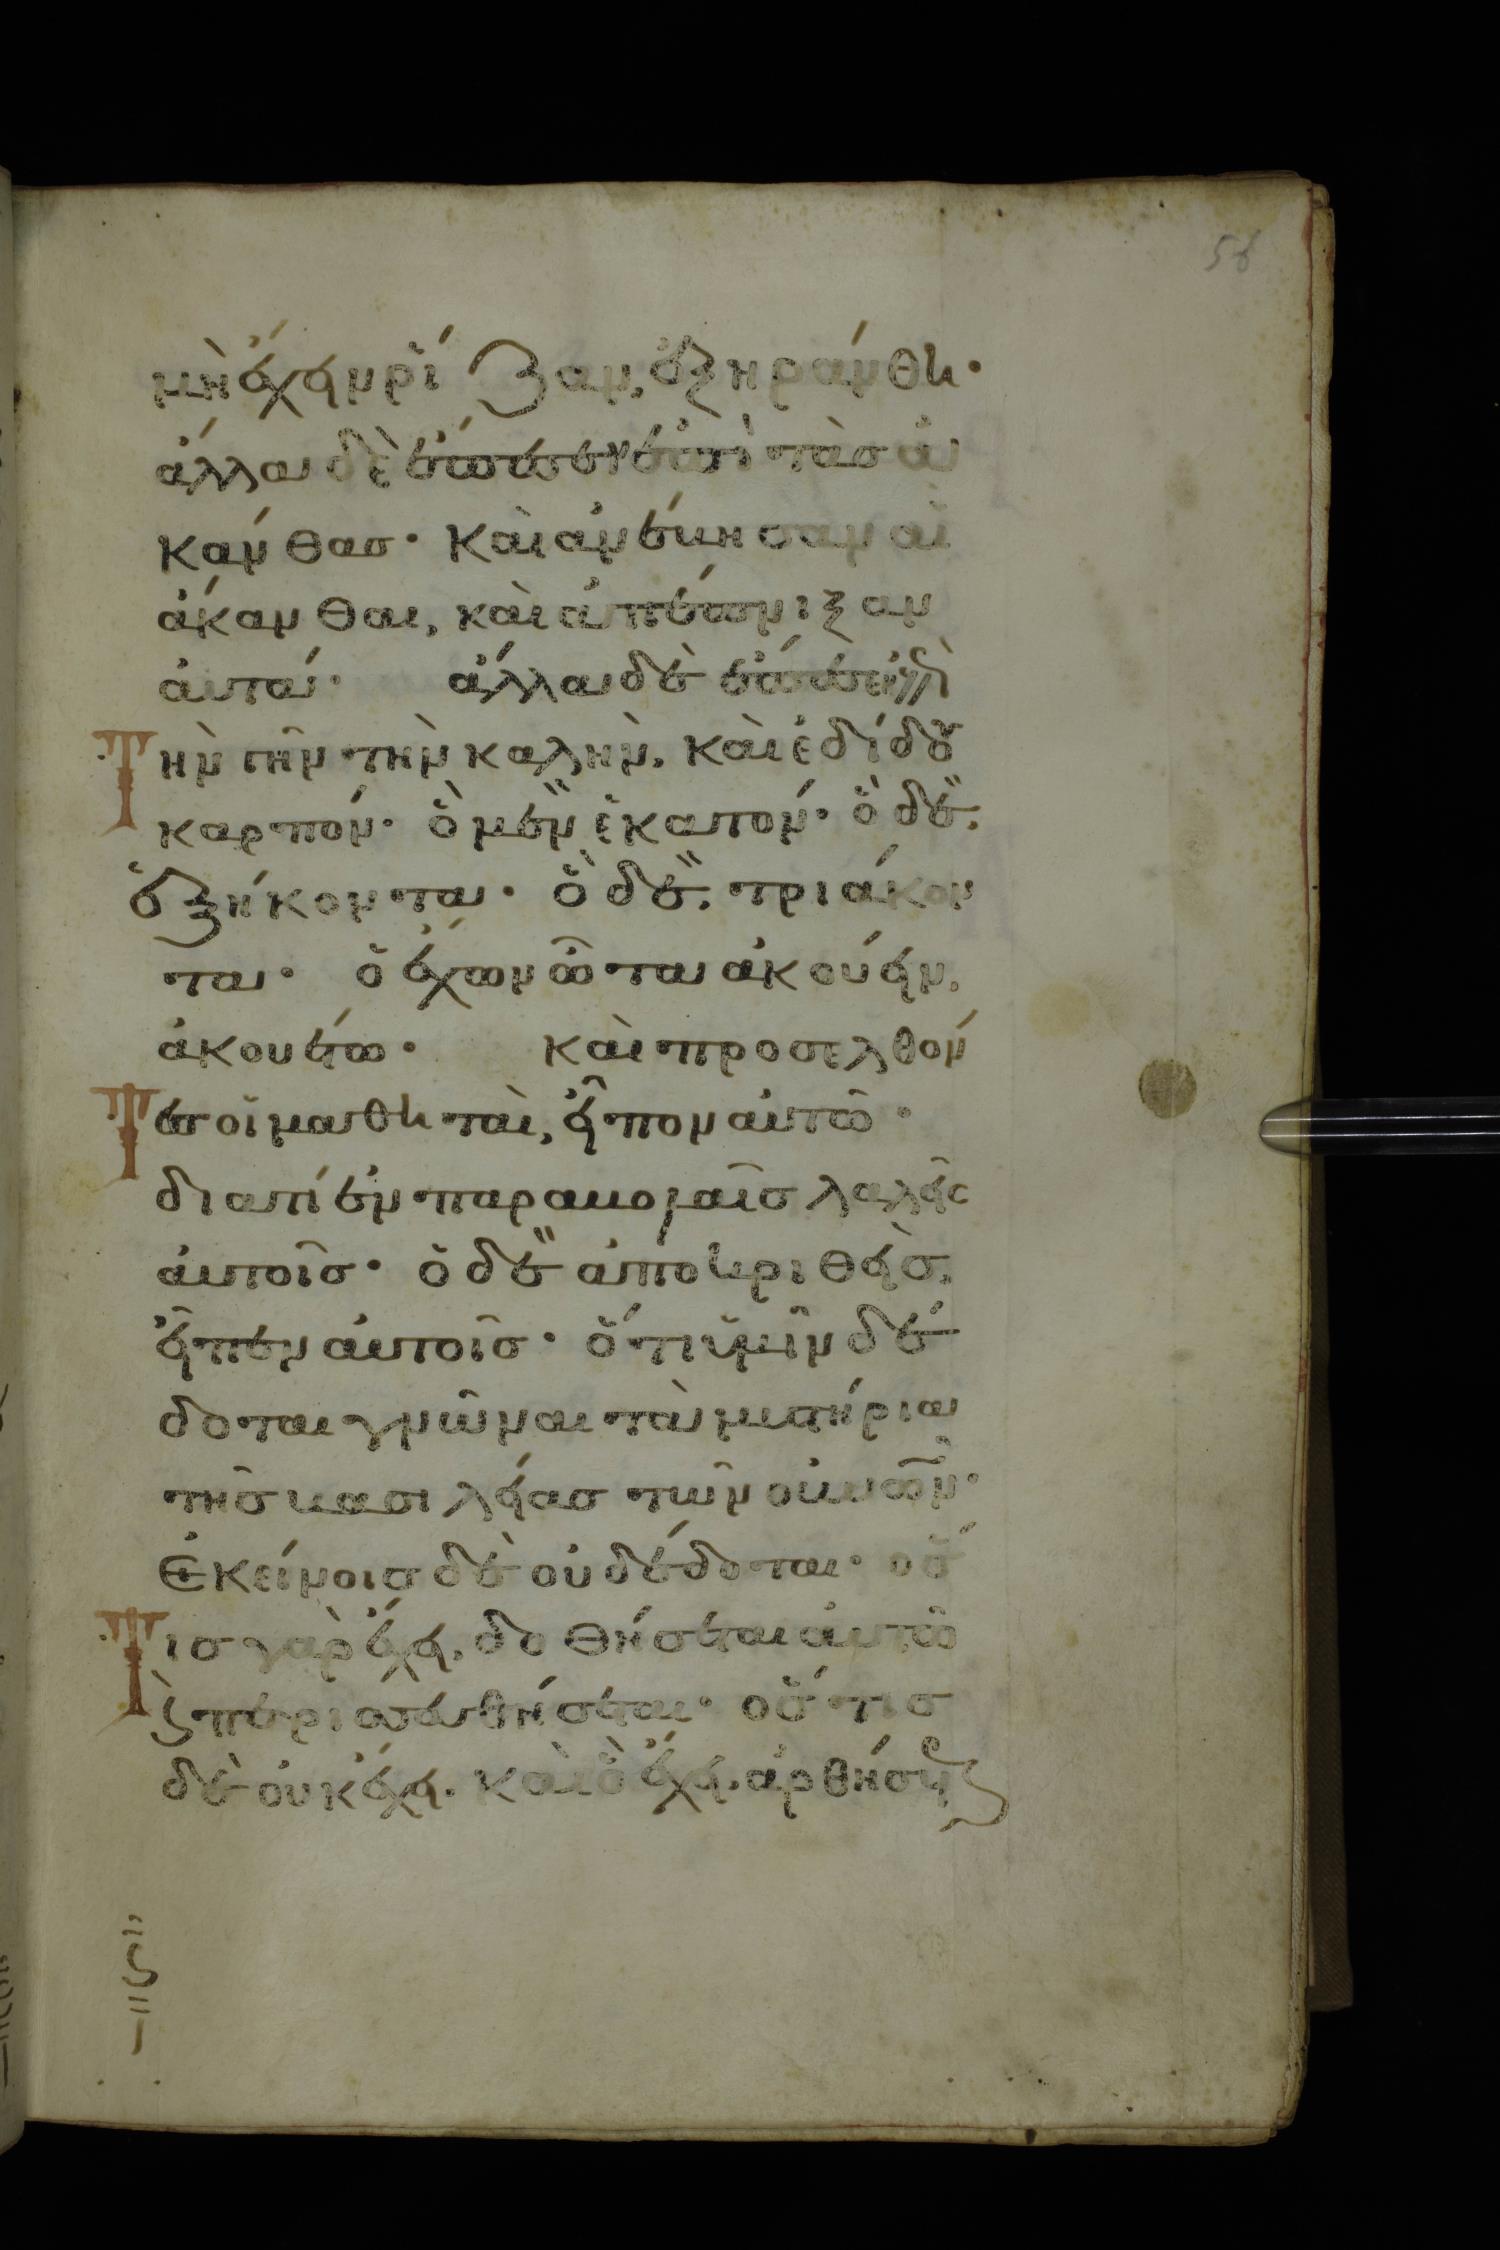 56
μὴ ἔχειν ρίζαν, ἐξηράνθη·
ἄλλα δὲ ἔπεσεν ἐπὶ τὰς ἀ
κάνθας· καὶ ἀνέβησαν αἱ
ἄκανθαι, καὶ ἀπέπνιξαν
αὐτά· ἄλλα δὲ ἔπεσεν ἐπὶ
τὴν γῆν τὴν καλὴν, καὶ ἐδίδου
καρπόν· ὃ μὲν ἑκατόν· ὃ δὲ,
ἑξήκοντα· ὃ δὲ, τριάκον
τα· ὁ ἔχων ὦτα ἀκούειν,
ἀκουέτω· καὶ προσελθόν
τες οἱ μαθηταὶ, εἶπον αὐτῶ·
διατί ἐν παραβολαῖς λαλεῖς
αὐτοῖς· ὁ δὲ ἀποκριθεὶς,
εἶπεν αὐτοῖς· ὅτι ὑμῖν δέ
δοται γνῶναι τὰ μυστήρια
τῆς βασιλείας τῶν οὐνῶν·
Ἐκείνοις δὲ οὐ δέδοται· ὅσ
τις γὰρ ἔχει, δοθήσεται αὐτῶ
ϗ περισσευθήσεται· ὅστις
δὲ οὐκ ἔχει, καὶ ὃ ἔχει, ἀρθήσεται